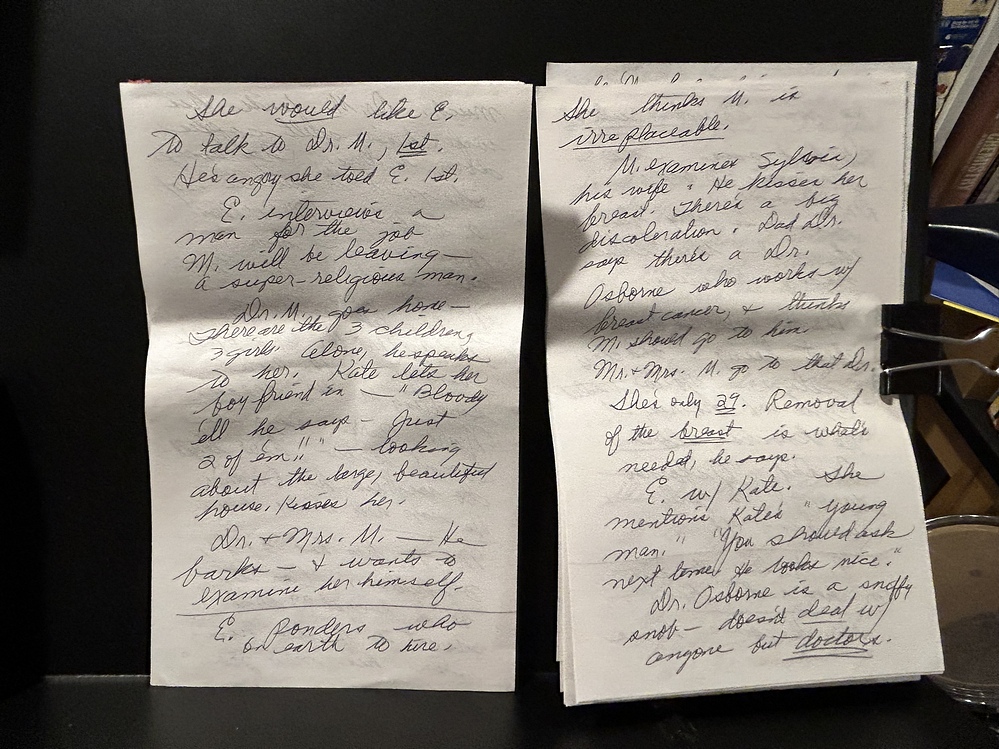 She would like E.
to talk to Dr. M., 1st.
He's angry she told E. 1st.
E. interviews a
man for the job
M. will be leaving—
a super-religious man.
Dr. M. goes home—
There are the 3 children,
3 girls. Alone, he speaks
to her. Kate lets her
boy friend in — "Bloody
'ell he says — Just
2 of 'em"" — looking
about the large, beautiful
house. Kisses her.
Dr. & Mrs. M. — He
barks — & wants to
examine her himself.
E. ponders who
on earth to hire.
She thinks M. is
irreplaceable.
M. examines Sylvia,
his wife. He kisses her
breast. There's a big
discoloration. Dad Dr.
says there's a Dr.
Osborne who works w/
breast cancer, & thinks
M. should go to him.
Mr. & Mrs. M. go to that Dr.
She's only 29. Removal
of the breast is what's
needed, he says.
E. w/ Kate. She
mentions Kate's "young
man." "You should ask
next time. He looks nice."
Dr. Osborne is a sniffy
snob — doesn't deal w/
anyone but doctors.